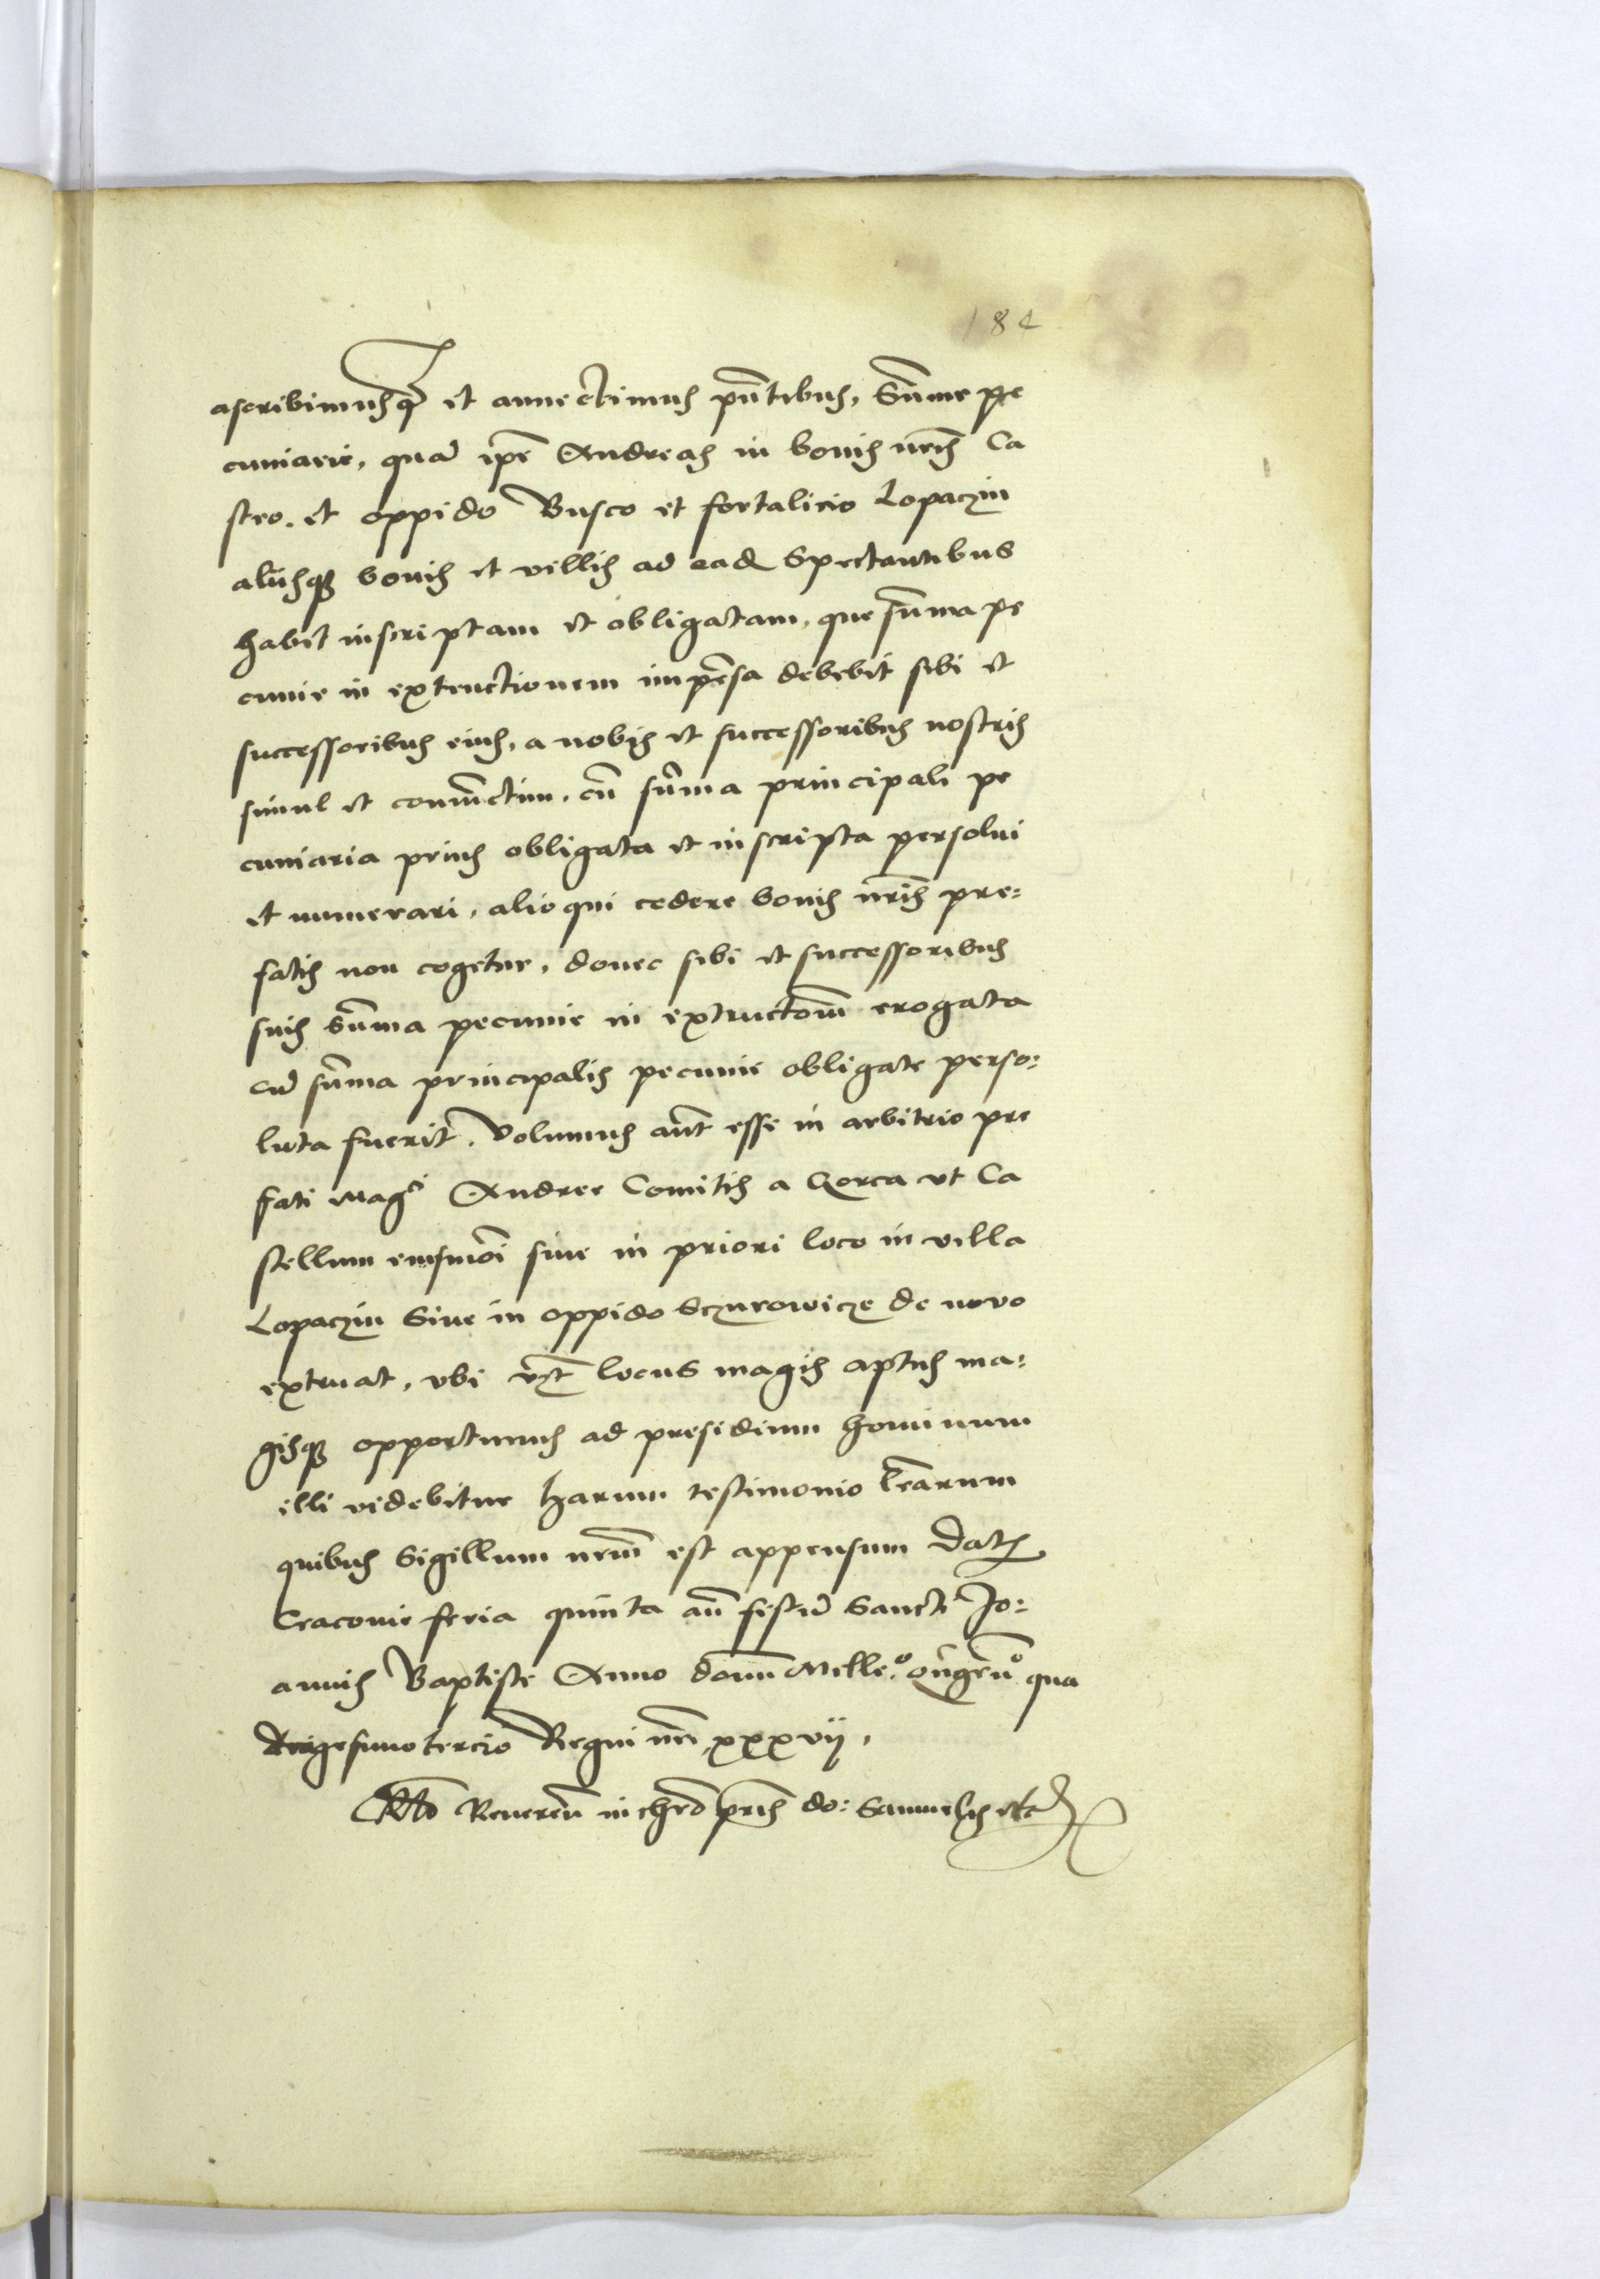 184
ascribimusq et annectimus pntibus, Summe pe
cuniarie, quam ipe Andreas in bonis nris Ca
stro. et oppido Busco et fortalicio Lopaczin
aliisq bonis et villis ad ead Spectantibus
habet inscriptam et obligatam, que summa pe
cunie in extructionem impensa debebit sibi et
successoribus eius, a nobis et successoribus nostris
simul et coniunctim, cum summa principali pe
cuniaria prius obligata et inscripta persolui
et numerari, alioqui cedere bonis nris pre=
fatis non cogetur, donec sibi et successoribus
suis Summa pecunie in extructoem erogata
cum summa principalis pecunie obligate perso=
luta fuerit. Volumus aut esse in arbitrio pre
fati Magci Andree Comitis a Gorca ut Ca
stellum eiusmoi siue in priori loco in villa
Lopaczin Siue in oppido Sczurowicze de novo
extruat, vbi locus magis aptus ma=
gisq opportunus ad presidium hominum
illi videbitur harum testimonio lrarum
quibus Sigillum nrum est appensum Dat
Cracovie feria quinta an festum Sancti Jo=
annis Baptiste Anno domi Mille.o qngenmo qua
dragesimo tercio Regni nri xxxvij,
Rlo Reueren in chro pris do: Samuelis etc